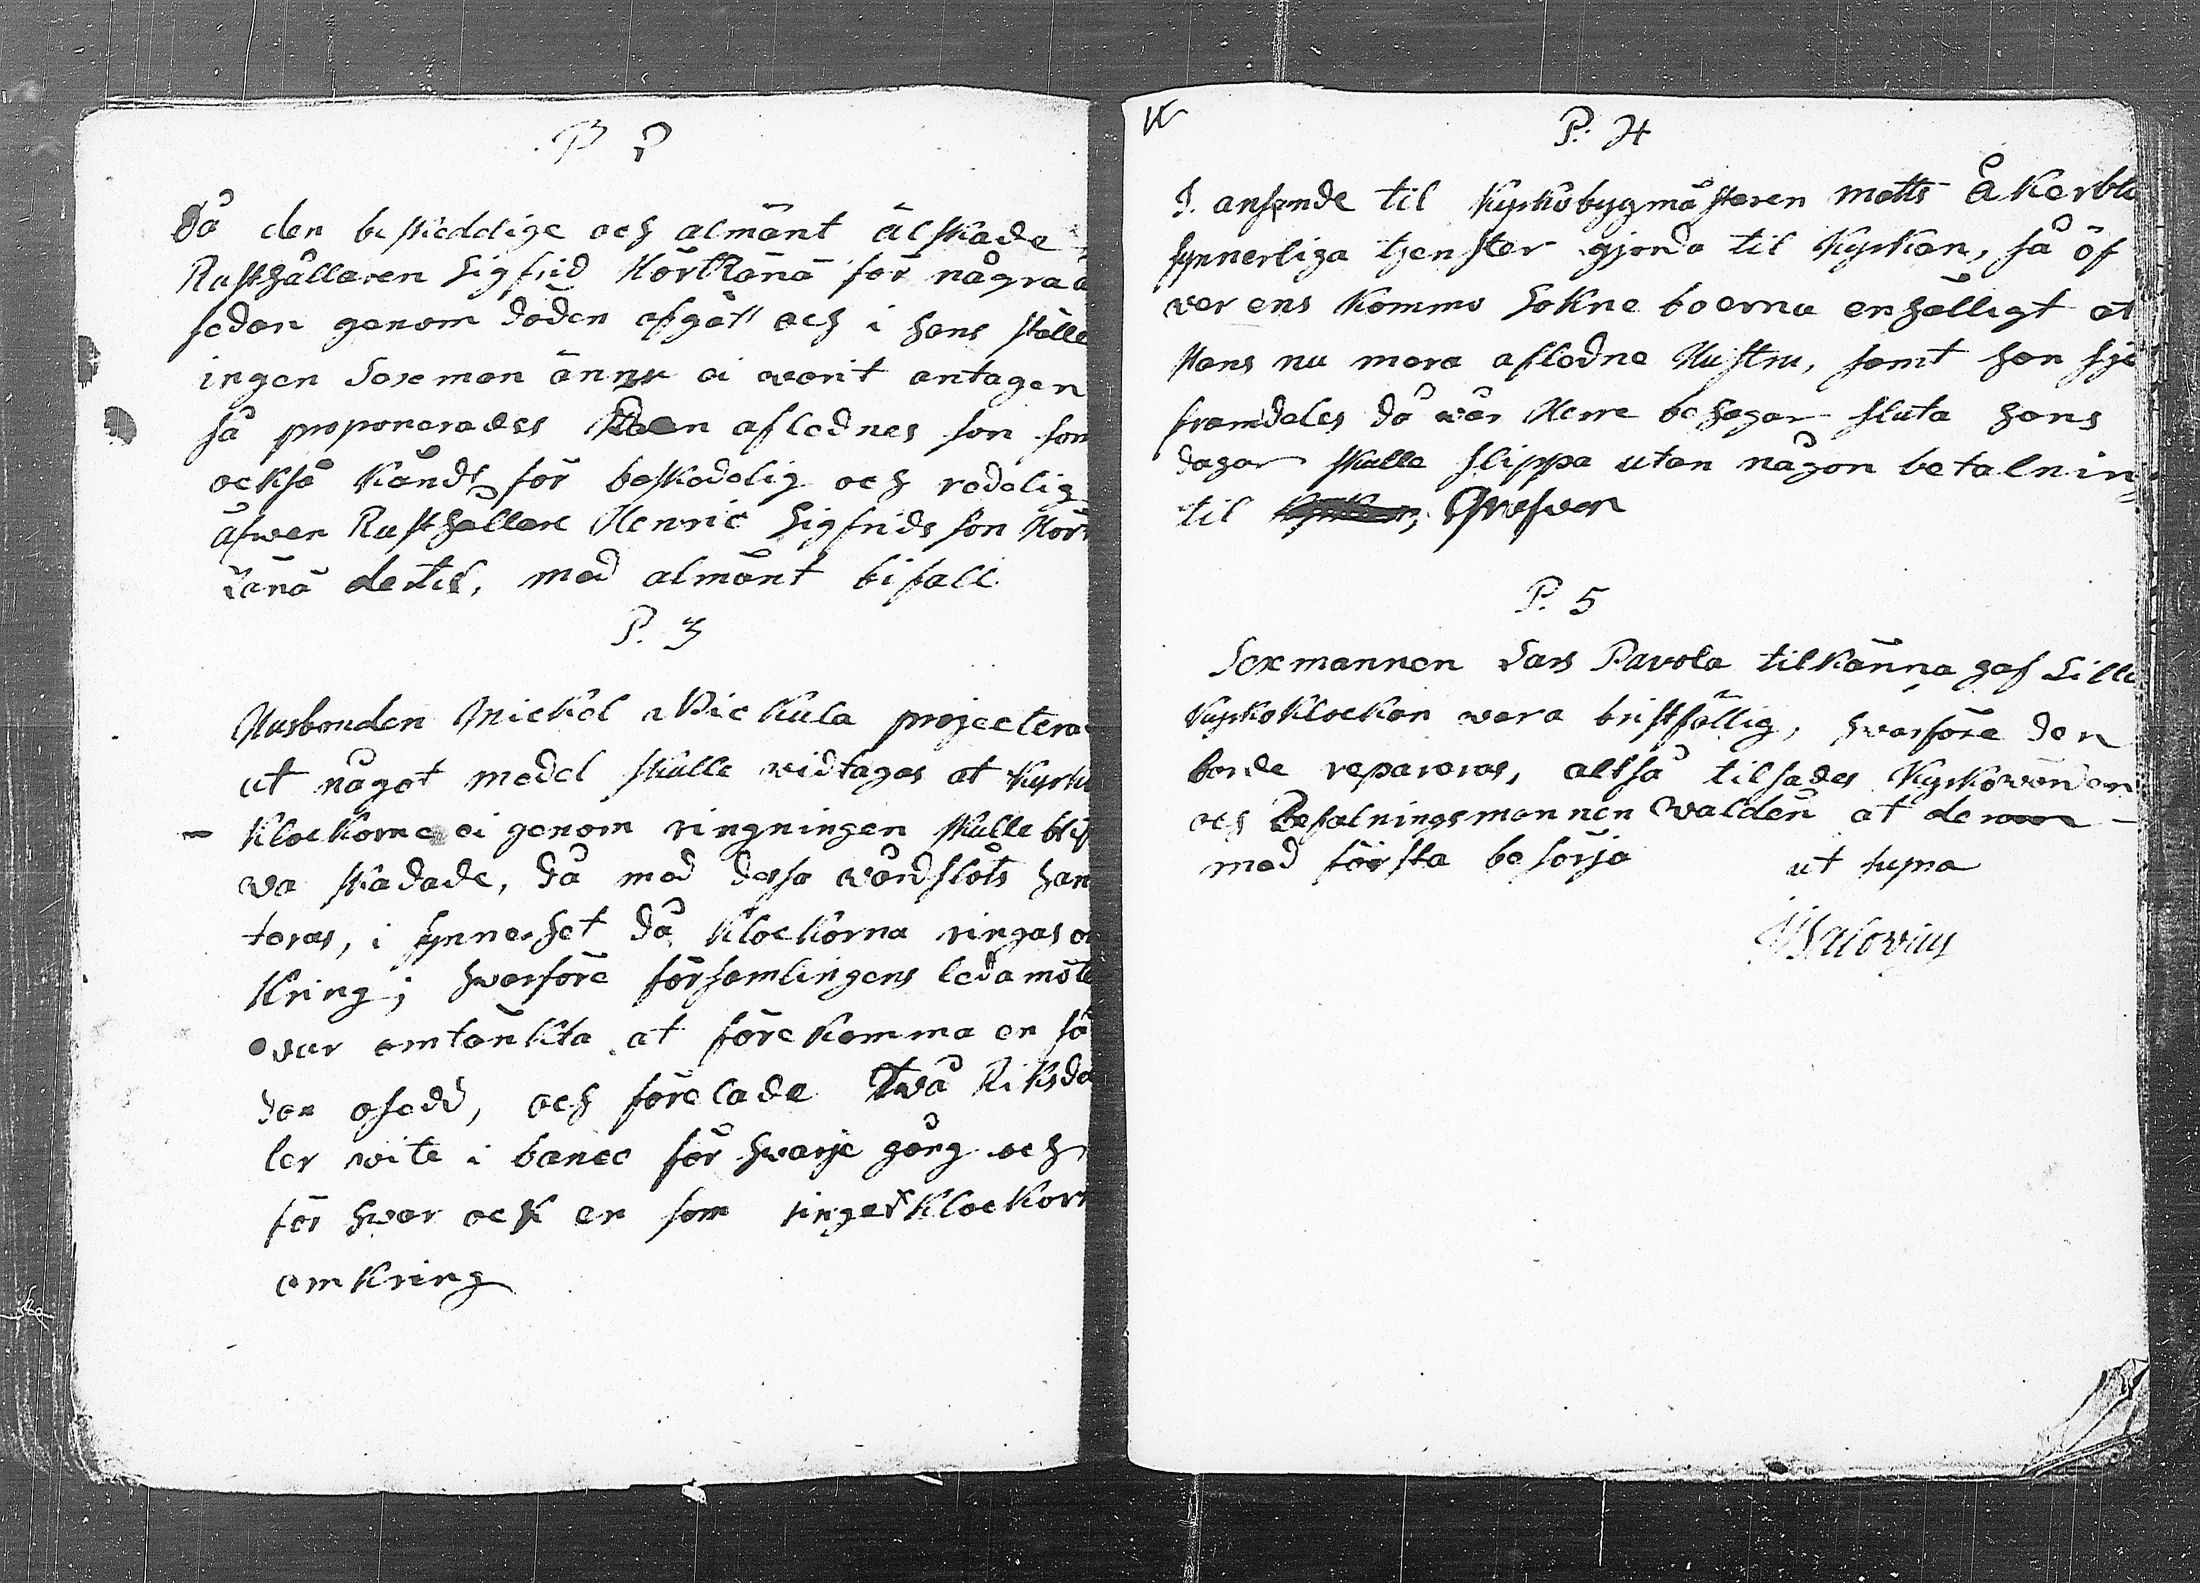 P 2
Då den beskiedelige och almänt älskade
Rusthållaren Sigfrid Hörtkänä för några
sedan genom döden afgått och i hans ställe
ingen Sexman ännu ei warit antagen
så proponerades den aflednes son som
också kändt för beskedelig och redelig
äfwen Rusthållare Henric Sigfrids son Hör
känä dertil, med almänt bifall
P. 3
Husbonden Mickel Wickula projectera
at något medel skulle widtagas at Kyrko
Klockorne ei genom ringningen skulle blif
wa skadade, då med dessa wårdslöts han
teras, i synnerhet då Klockorna ringas om
Kring; hwarföre församlingens ledamöte
war omtänkta at förekomma en så
dan osedd, och förelade Twå Riksda
ler wite i banco för hwarje gång och
för hwar ock en som ringer Klockorn
omkring
P. 4
I anseende til Kyrkobygmästaren Matts Åkerblo
synnerliga tjenster gjorda til Kyrkan, så öf
wer ens kommo Sokneboerna enhälligt at
Hans nu mera aflednа Hustru, samt han sje
framdeles då wår Herre behagar sluta hans
dagar skulle slippa utan någon betalning
til Grafwen
P. 5
Sexmannen Lars Pavola tilkänna gaf Lille
Kyrkoklockan wara bristfällig, hwarföre den
borde repareras, altså tilsades Kyrkowärden
och Befalningsmannen Walden at den
med första besörja ut supra